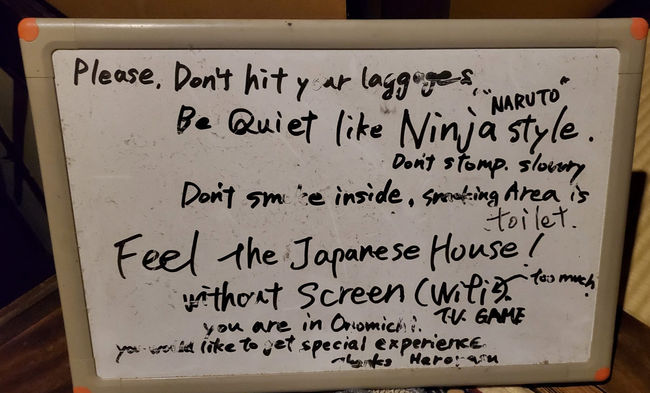 Please. Don't hit your laggages
"NARUTO"
Be Quiet like Ninja style.
Don't stomp. slowly
Don't smoke inside. smoking Area is
toilet.
Feel the Japanese House!
without Screen (Wifi). too much
T.V. GAME
you are in Onomichi.
you would like to get special experience
Thanks